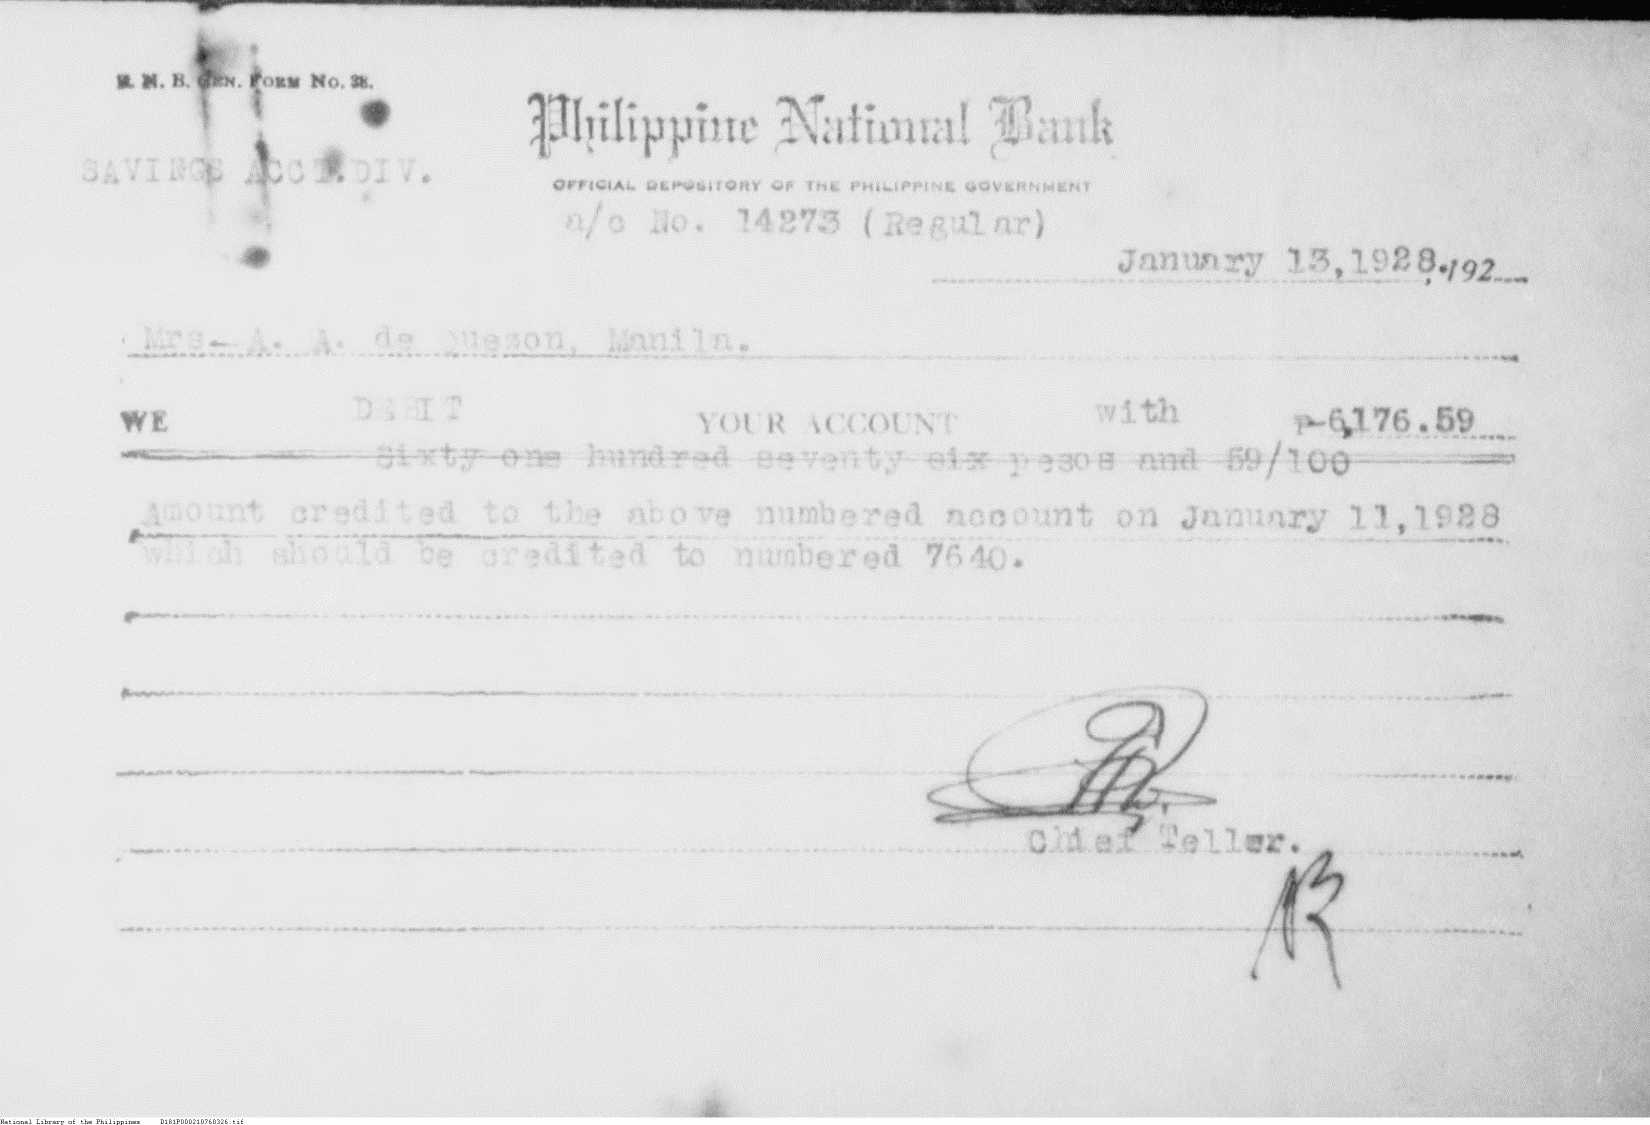 P. N. B. GEN. FORM No. 38.
Philippine National Bank
SAVINGS ACCT.DIV.
OFFICIAL DEPOSITORY OF THE PHILIPPINE GOVERNMENT
a/c No. 14273 (Regular)
January 13,1928. ,192
Mrs. A. A. de Quezon, Manila.
WE DEBIT YOUR ACCOUNT with P-6,176.59
Sixty one hundred seventy six pesos and 59/100
Amount credited to the above numbered account on January 11,1928
which should be credited to numbered 7640.
Chief Teller.
National Library of the Philippines D181P000210760326.tif